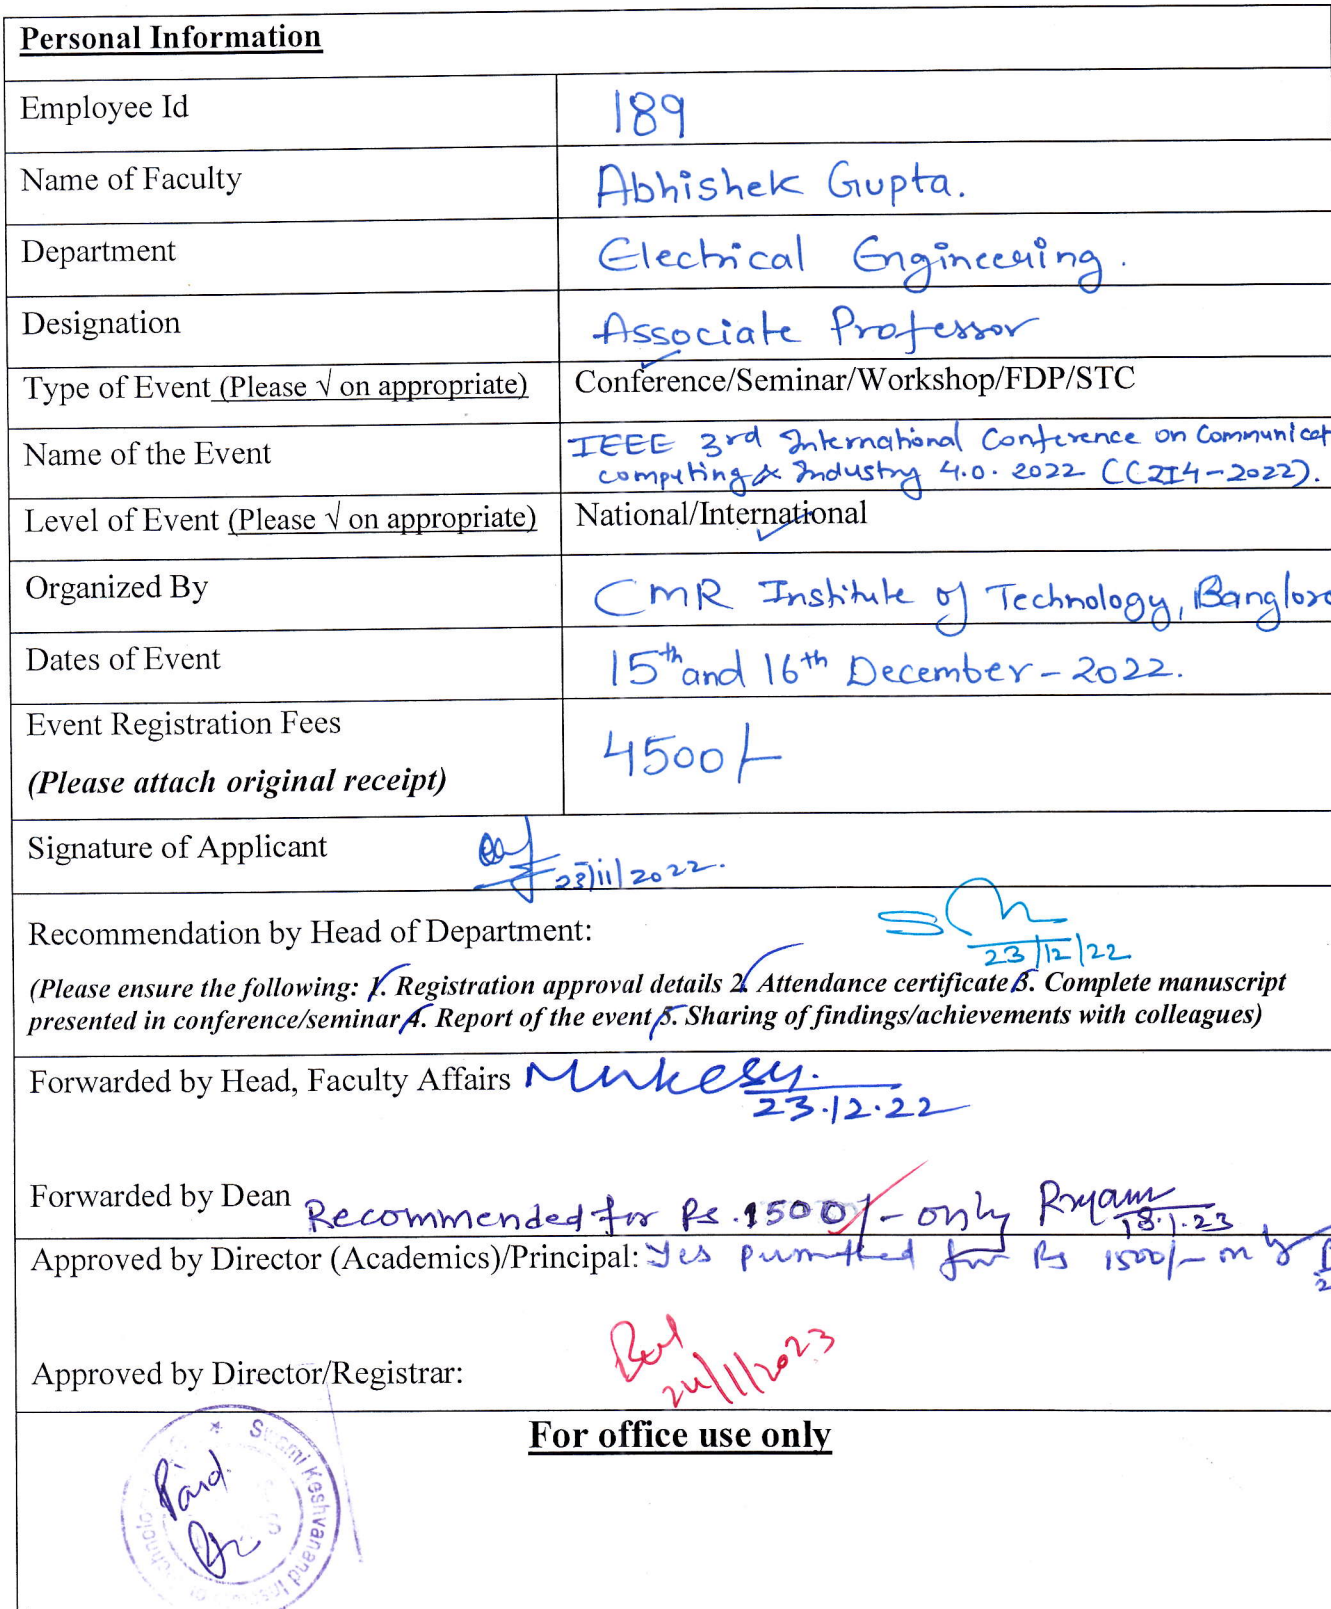 Personal Information
Employee Id 189
Name of Faculty Abhishek Gupta.
Department Electrical Engineering.
Designation Associate Professor
Type of Event (Please √ on appropriate) Conference/Seminar/Workshop/FDP/STC
Name of the Event IEEE 3rd International Conference on Communicat
computing & Industry 4.0. 2022 (C2I4-2022).
Level of Event (Please √ on appropriate) National/International
Organized By CMR Institute of Technology, Banglore
Dates of Event 15th and 16th December-2022.
Event Registration Fees
(Please attach original receipt) 4500/-
Signature of Applicant 23/11/2022.
Recommendation by Head of Department:
23/12/22
(Please ensure the following: 1. Registration approval details 2. Attendance certificate 3. Complete manuscript
presented in conference/seminar 4. Report of the event 5. Sharing of findings/achievements with colleagues)
Forwarded by Head, Faculty Affairs Mukesh.
23.12.22
Forwarded by Dean Recommended for Rs. 1500/- only
18.1.23
Approved by Director (Academics)/Principal: Yes permitted for Rs 1500/- only
Approved by Director/Registrar:
24/1/2023
For office use only
Swami Keshvanand
Paid